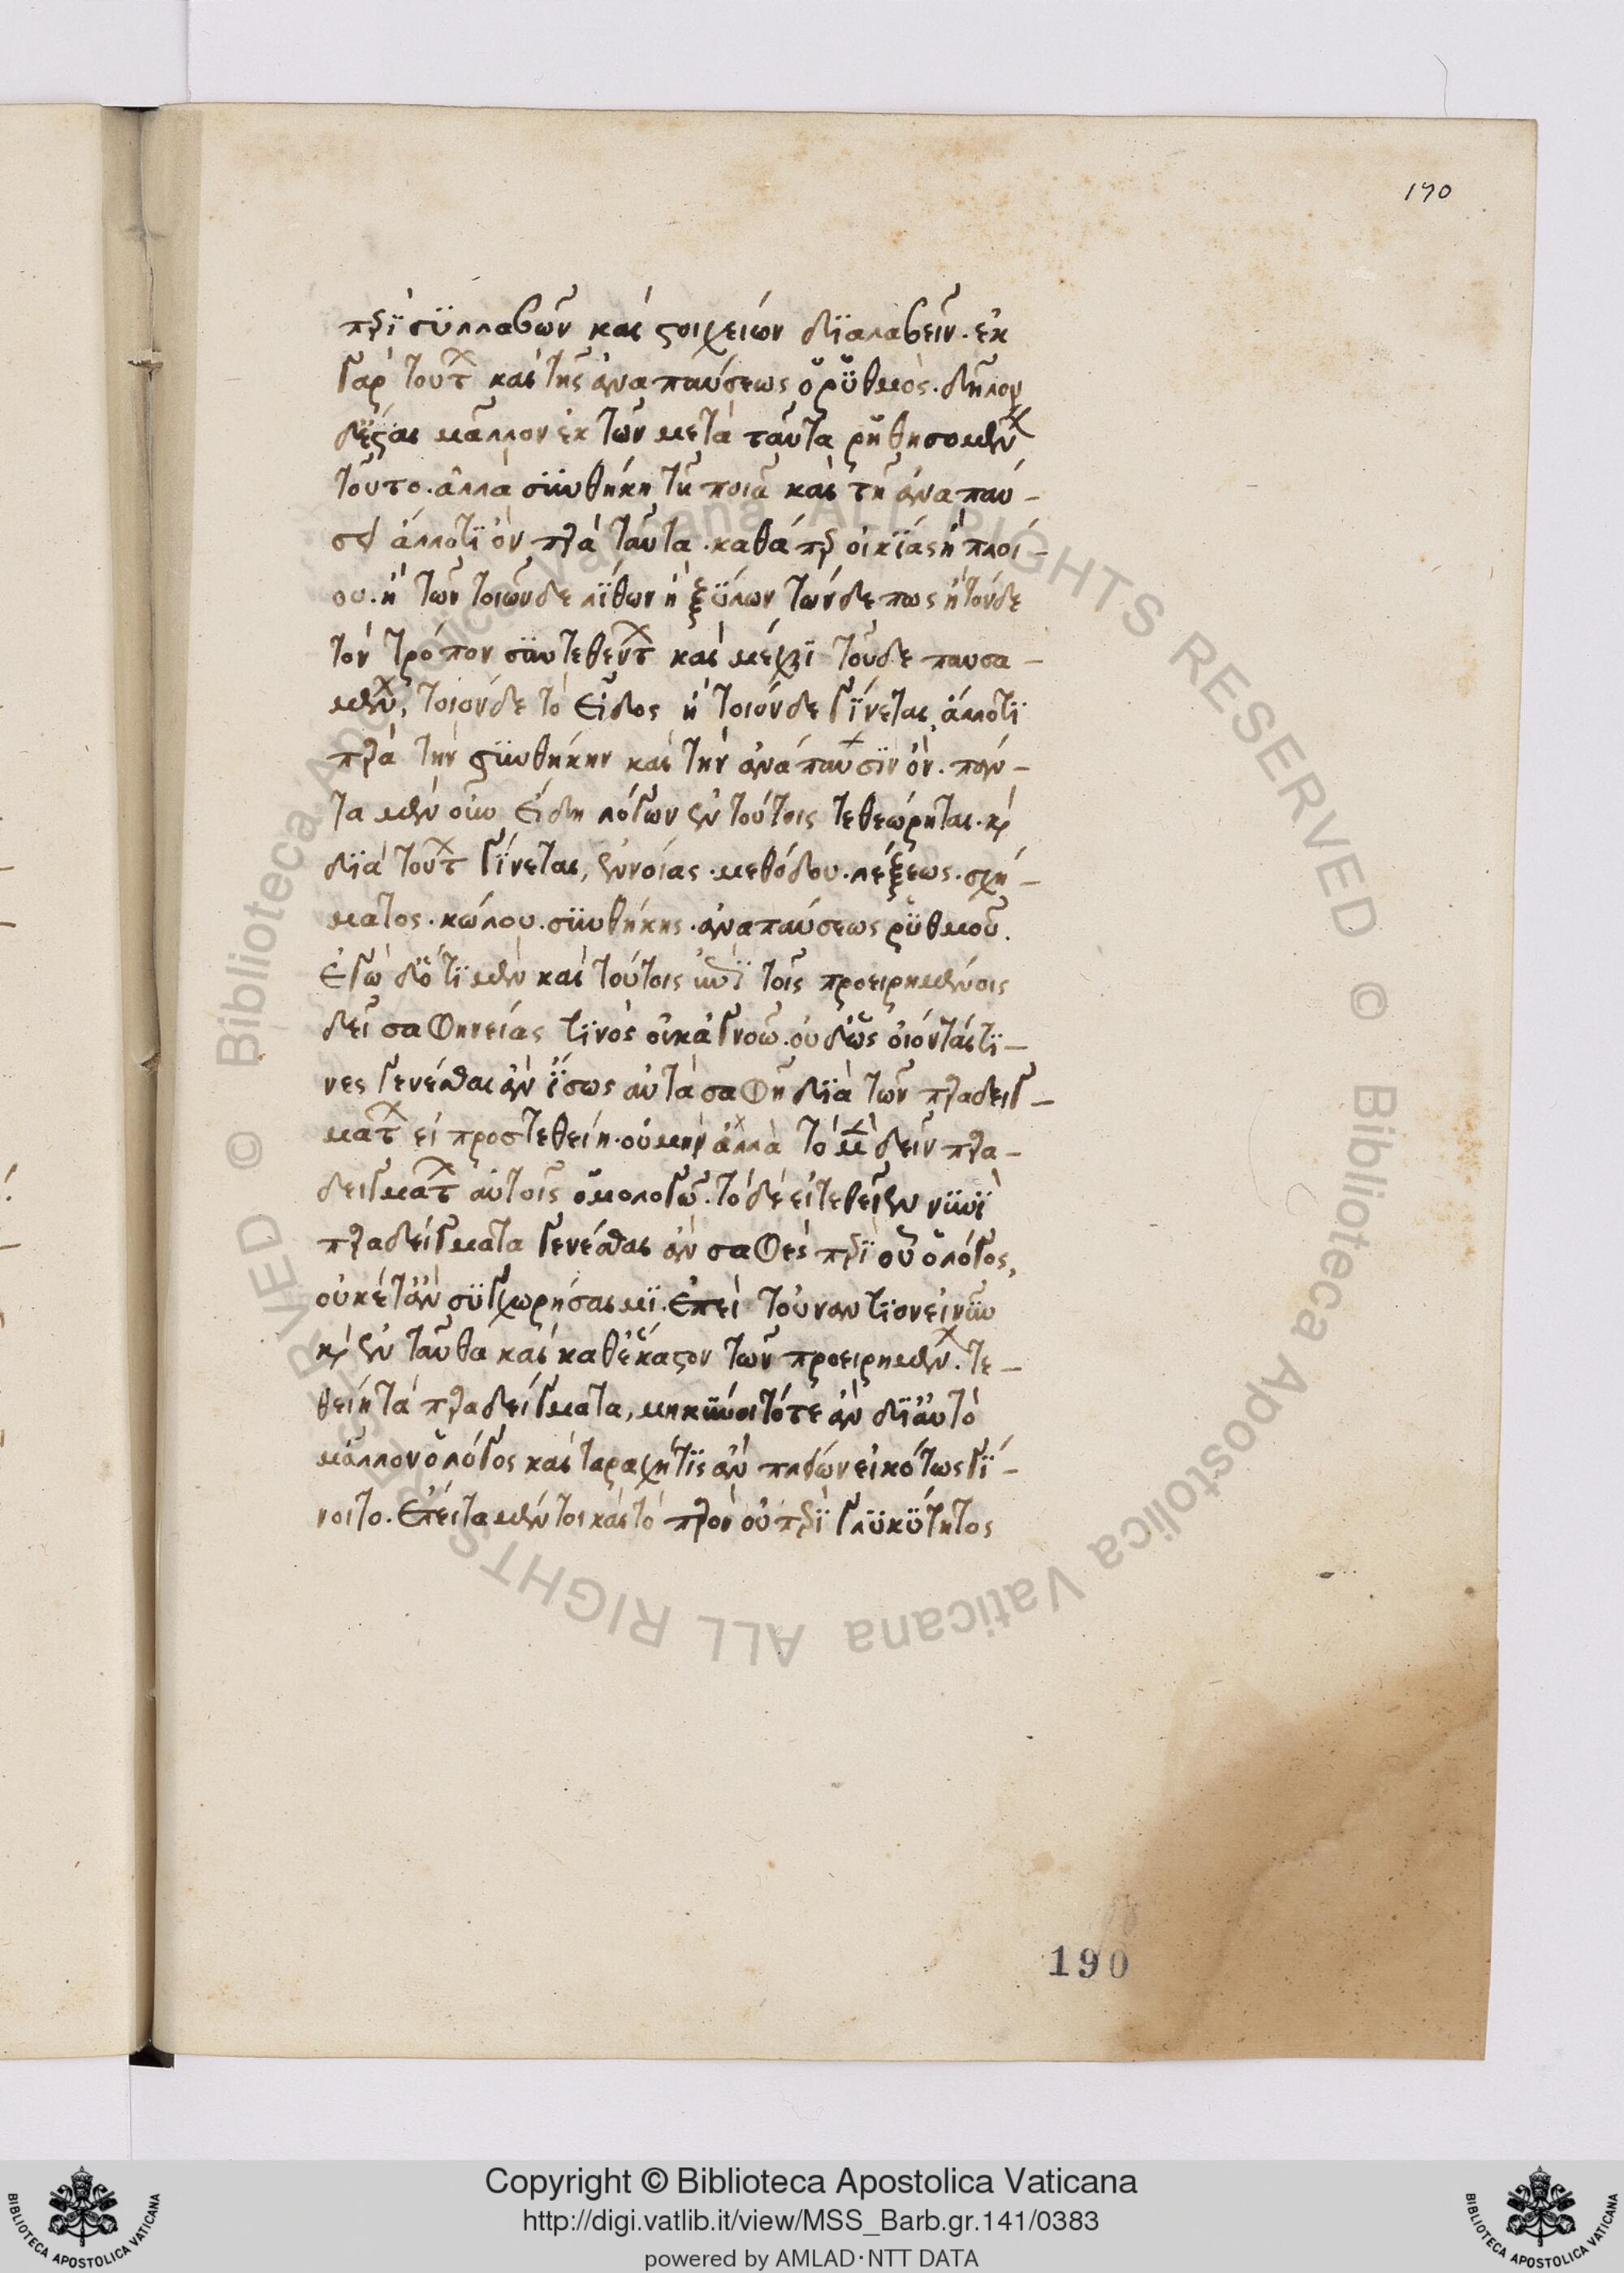 190
περὶ συλλαβῶν καὶ στοιχείων διαλαβεῖν. ἐκ
γὰρ τούτων καὶ τῆς ἀναπαύσεως ὁ ῥυθμός. δῆλον
δ' ἔσται μᾶλλον ἐκ τῶν μετὰ ταῦτα ῥηθησομένων
τοῦτο. ἀλλὰ συνθήκη τῆ ποιᾶ καὶ τῆ ἀναπαύ-
σει ἄλλο τι ὂν παρὰ ταῦτα. καθάπερ οἰκίας ἢ πλοί-
ου. ἢ τῶν τοιῶνδε λίθων ἢ ξύλων τῶνδέ πως ἢ τόνδε
τὸν τρόπον συντεθέντων καὶ μέχρι τοῦδε παυσα-
μένων, τοιόνδε τὸ εἶδος ἢ τοιόνδε γίνεται, ἄλλό τι
παρὰ τὴν συνθήκην καὶ τὴν ἀνάπαυσιν ὄν. πάν-
τα μὲν οὖν εἴδη λόγων ἐν τούτοις τεθεώρηται. καὶ
διὰ τούτων γίνεται, ἐννοίας. μεθόδου. λέξεως. σχή-
ματος. κώλου. συνθήκης. ἀναπαύσεως ῥυθμοῦ.
Ἐγὼ δ' ὅτι μὲν καὶ τούτοις τοῖς προειρημένοις
δεῖ σαφηνείας τινὸς οὐκ ἀγνοῶ. οὐδ' ὡς οἴονταί τι-
νες γενέσθαι ἂν ἴσως αὐτὰ σαφῆ διὰ τῶν παραδειγ-
μάτων εἰ προστεθείη. οὐ μὴν ἀλλὰ τὸ μὲν δεῖν παρα-
δειγμάτων αὐτοῖς ὁμολογῶ. τὸ δὲ εἰ τεθείη νυνὶ
παραδείγματα γενέσθαι ἂν σαφὲς περὶ οὗ ὁ λόγος,
οὐκέτ' ἂν συγχωρήσαιμι. Ἐπεὶ τοὐναντίον εἰ νῦν
καὶ ἐνταῦθα καὶ καθ' ἕκαστον τῶν προειρημένων. τε-
θείη τὰ παραδείγματα, μηκύνοιτό τε ἂν δι' αὐτὸ
μᾶλλον ὁ λόγος καὶ ταραχή τις ἂν εἰκότως γί-
νοιτο. Ἔπειτα μέντοι καὶ τὸ παρὸν οὐ περὶ γλυκύτητος
190
Copyright © Biblioteca Apostolica Vaticana
http://digi.vatlib.it/view/MSS_Barb.gr.141/0383
powered by AMLAD·NTT DATA
BIBLIOTECA APOSTOLICA VATICANA
BIBLIOTECA APOSTOLICA VATICANA
© Biblioteca Apostolica Vaticana ALL RIGHTS RESERVED © Biblioteca Apostolica Vaticana ALL RIGHTS RESERVED